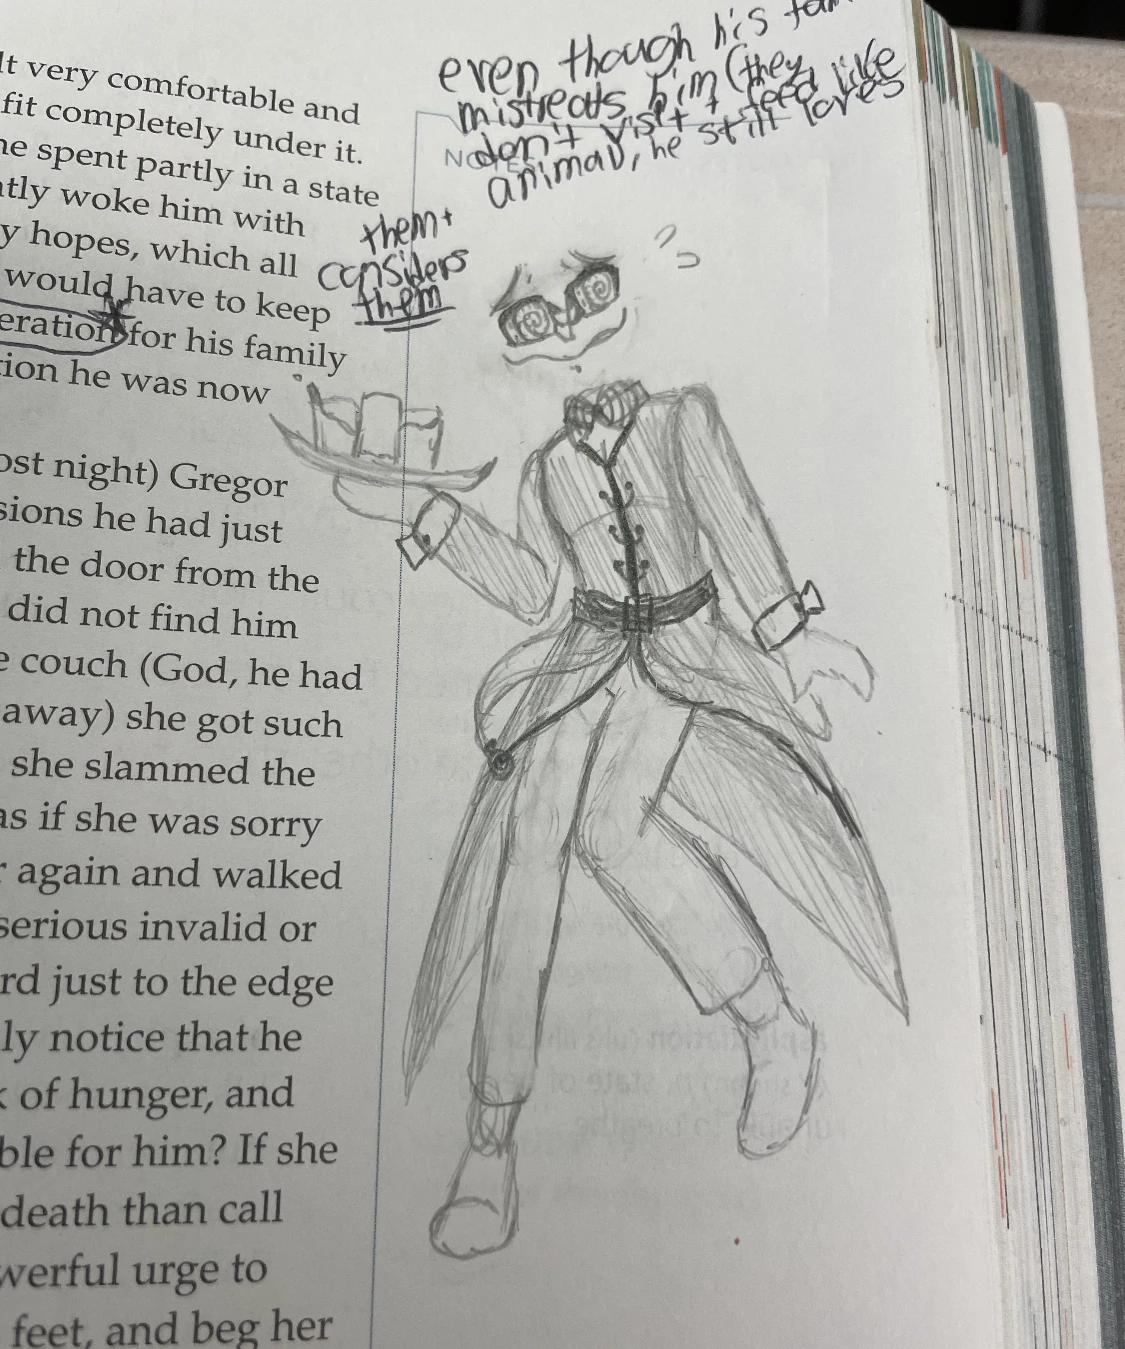 even though his
mistreats him (they
don't visit + feed like
animal), he still loves
them +
considers
them
lt very comfortable and
fit completely under it.
he spent partly in a state
ntly woke him with
y hopes, which all
would have to keep
eration for his family
tion he was now
ost night) Gregor
sions he had just
the door from the
did not find him
e couch (God, he had
away) she got such
she slammed the
as if she was sorry
r again and walked
serious invalid or
rd just to the edge
ly notice that he
k of hunger, and
ble for him? If she
death than call
werful urge to
feet, and beg her